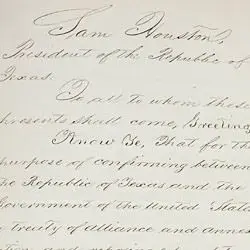 Sam Houston,
President of the Republic of
Texas.
To all to whom these
presents shall come, Greeting
Know Ye, That for the
purpose of confirming between
the Republic of Texas and the
Government of the United States
a treaty of alliance and annexa